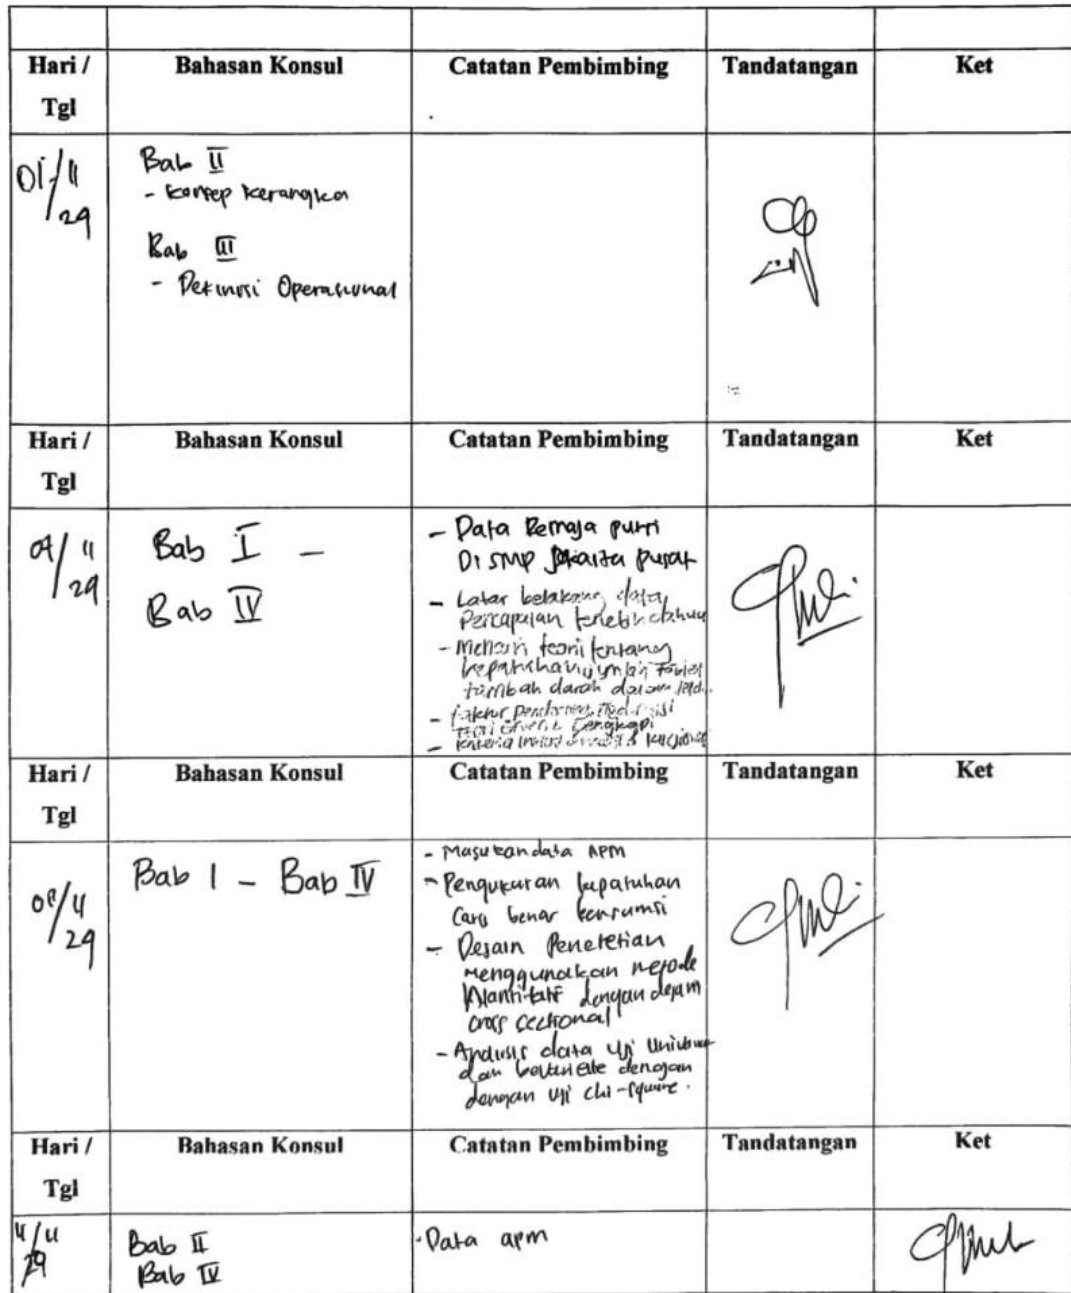 Hari / Bahasan Konsul Catatan Pembimbing Tandatangan Ket
Tgl
01/11
29
Bab II
- Konsep Kerangka
Bab III
- Definisi Operasional
Hari / Bahasan Konsul Catatan Pembimbing Tandatangan Ket
Tgl
07/11
29
Bab I -
Bab IV
- Data Remaja putri
Di SMP Jakarta pusat
- Latar belakang data
Percapaian
- Mencari teori tentang
tambah darah dalam
-
-
Hari / Bahasan Konsul Catatan Pembimbing Tandatangan Ket
Tgl
08/11
29
Bab I - Bab IV
- Masukan data APM
- Pengukuran kepatuhan
Cara benar konsumsi
- Desain Penelitian
menggunakan metode
kuantitatif dengan desain
cross sectional
- Analisis data uji
dan dengan
dengan uji chi-square.
Hari / Bahasan Konsul Catatan Pembimbing Tandatangan Ket
Tgl
11/11
29
Bab II
Bab IV
- Data apm